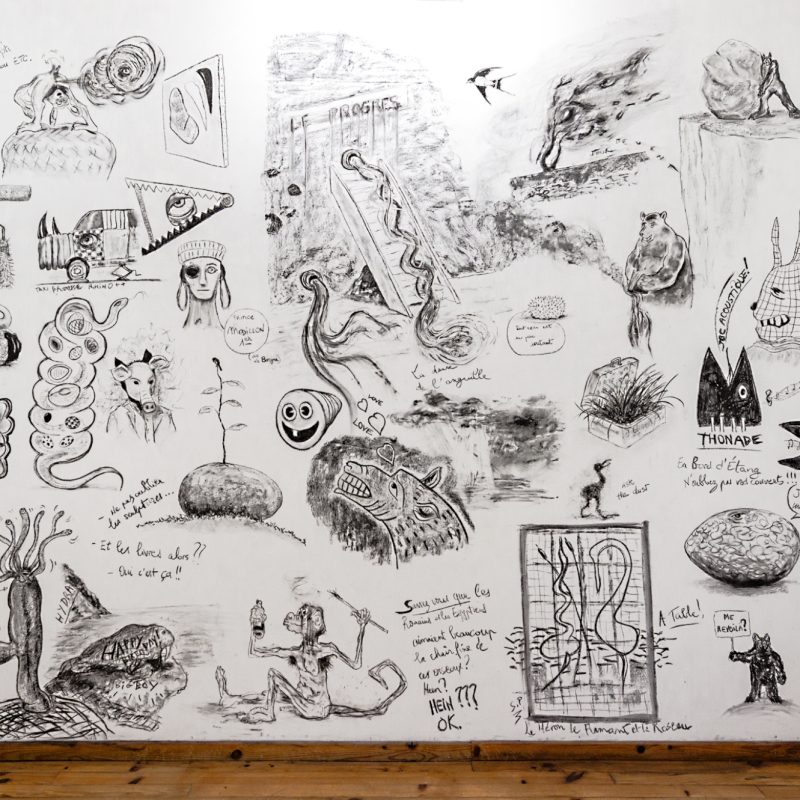 ETC.
LE PROGRES
PRINCE
MODILLON
1er
La danse
de l'anguille
LOVE
LOVE
ROC ACOUSTIQUE!
THONADE
En Bord d'Étang
N'oubliez pas vos couverts!!!
ASK
THE DUST
Ne pas oublier
les sculptures...
- Et les livres alors??
- Oui c'est ça!!
HYDRA
Savez vous que les
Romains et les Égyptiens
aimaient beaucoup
la chair fine de
ces oiseaux?
Hein?
HEIN???
OK.
A Table!
ME
REVOILÀ?
Le Héron le Flamant et le Roseau